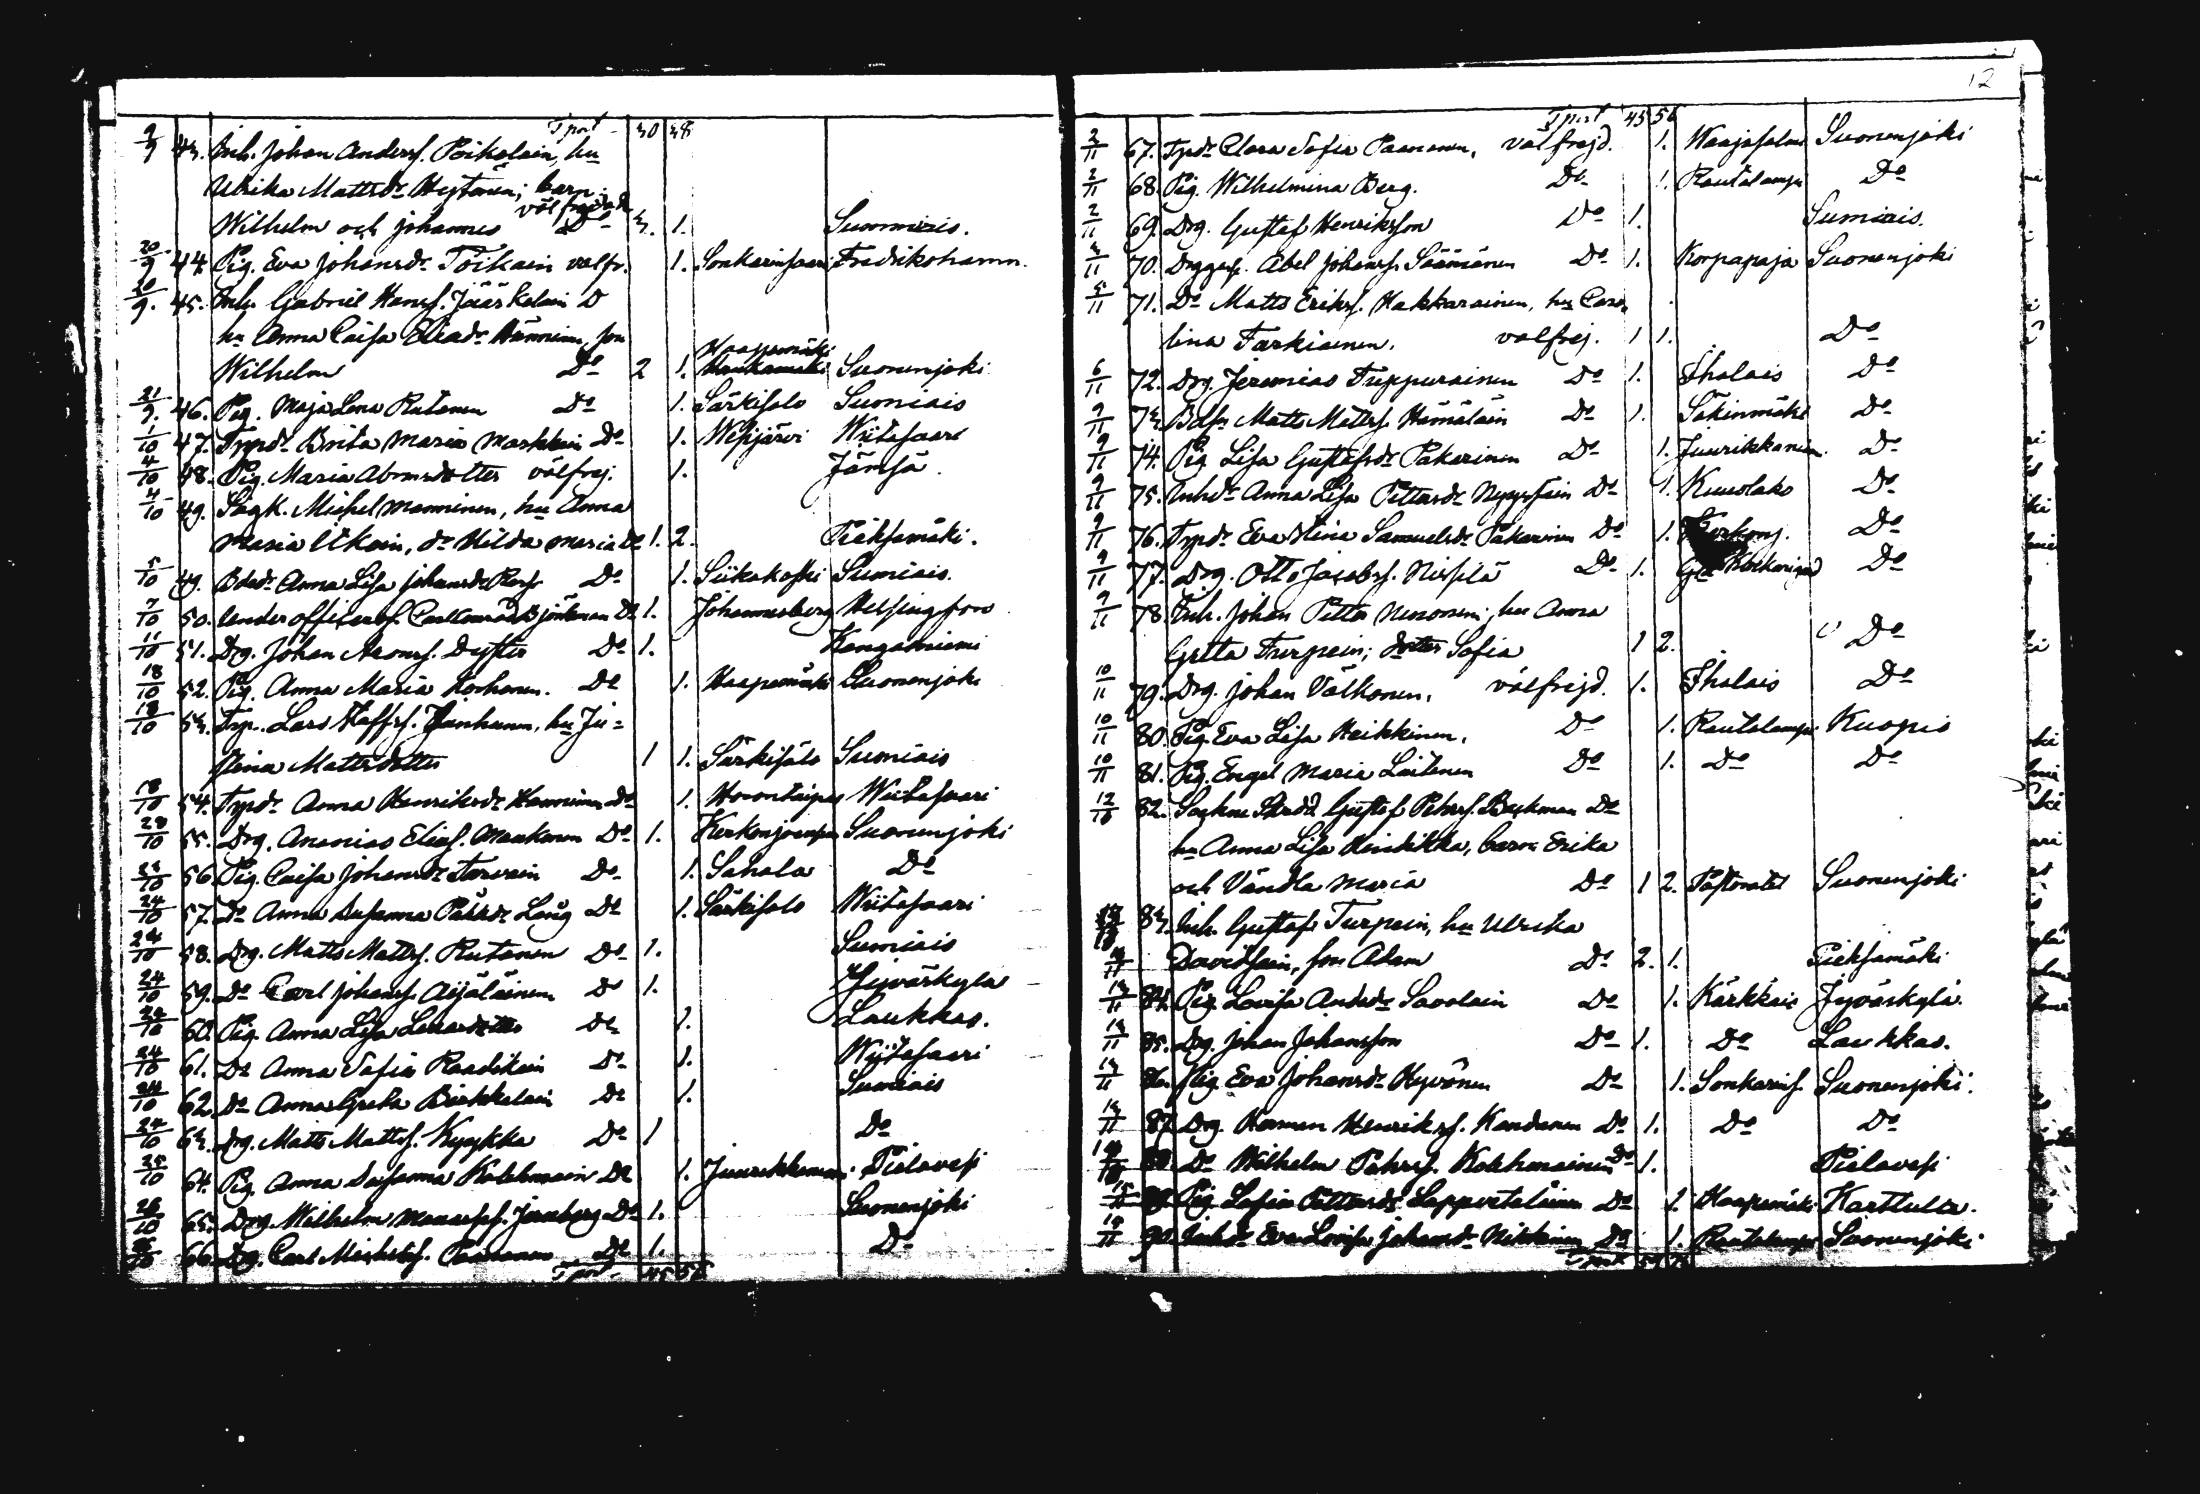 Tport 40 48
9/9 43. Inh. Johan Anderss. Poikolain, hu
Ulrika Mattsdr Hytönen; barn:
välfrejdade
Wilhelm och Johannes Do 3. 1. Sumiais.
20/9 44. Pig. Eva Johansdr Toikain välfr. 1. Sonkarinsaari Fredrikshamn.
20/9. 45. Inh. Gabriel Hansf. Jääskelain D
hu Anna Caisa Eliadr Hänninen, son
Haapamäki
Wilhelm Do 2 1. Suonenjoki
21/9. 46. Pig. Maja Lena Rutanen Do 1. Särkisalo Sumiais
1/10 47. Trpdr Brita Maria Markkain Do 1. Wesijärvi Wiitasaari
4/10 48. Pig. Maria Abramsdotter välfrej. 1. Jämsä.
4/10 49. Sågk. Michel Manninen, hu Anna
Maria Ukain, dr Hilda Maria Do 1. 2. Pieksamäki.
5/10 49. Anna Lisa Johansdr Do 1. Siikakoski Sumiais.
7/10 50. Underofficersf. Carl Conrad Björkman Do 1. Johannesberg Helsingfors
11/10 51. Drg. Johan Aronsf. Dyster Do 1. Kangasniemi
18/10 52. Pig. Anna Maria Korhonen. Do 1. Haapamäki Suonenjoki
18/10 53. Trp. Lars Staffsf. Janhunen, hu Ju=
stina Mattsdotter 1 1. Särkisalo Sumiais
18/10 54. Trpdr Anna Henriksdr Hänninen Do 1. Horontaipal Wiitasaari
28/10 55. Drg. Ananias Eliasf. Maukonen Do 1. Kerkonjoensuu Suonenjoki
24/10 56. Pig. Caisa Johansdr Tarvain Do 1. Sahala Do
24/10 57. Do Anna Susanna Påhlsdr Lång Do 1. Särkisalo Wiitasaari
24/10 58. Drg. Matts Mattsf. Rutanen Do 1. Sumiais
24/10 59. Do Carl Johansf. Äijäläinen Do 1. Jyväskylä
24/10 60. Pig. Anna Lisa Do 1. Laukkas.
24/10 61. Do Anna Sofia Raadikain Do 1. Wiitasaari
24/10 62. Do Anna Greta Pirkkalain Do 1. Sumiais
24/10 63. Drg. Matts Mattsf. Kyykka Do 1 Do
25/10 64. Pig. Anna Susanna Kolehmain Do 1. Juurikkaniemi Pielavesi
26/10 65. Drg. Wilhelm Manassesf. Jernberg Do 1. Suonenjoki
26/10 66. Drg. Carl Michelsf. Paananen Do 1. Do
Tport. 45 56
12
Tport 45 56
2/11 67. Trpdr Clara Sofia Paananen. välfrejd. 1. Waajasalmi Suonenjoki
2/11 68. Pig. Wilhelmina Berg. Do 1. Rautalampi Do
2/11 69. Drg. Gustaf Henriksson Do 1. Sumiais.
3/11 70. Abel Johansf. Säämänen Do 1. Korpapaja Suonenjoki
5/11 71. Do Matts Eriksf. Hakkarainen, hu Caro
lina Tarkiainen. välfrej. 1 1. Do
6/11 72. Drg. Jeremias Tuppurainen Do 1. Ihalais Do
9/11 73. Matts Mattsf. Hämäläin Do 1. Säkinmäki Do
9/11 74. Pig Lisa Gustafsdr Pakarinen Do 1. Juurikkaniem. Do
9/11 75. Inhdr Anna Lisa Pettersdr Nyyssöin Do 1. Kuvolaks Do
9/11 76. Trpdr Eva Stina Samuelsdr Pakarinen Do 1. Kerkonj. Do
9/11 77. Drg. Otto Jacobsf. Niskilä Do 1. Do
9/11 78. Inh. Johan Petter Nenonen; hu Anna
Gretta Turpein; dotter Sofia 1 2. Do
10/11 79. Drg. Johan Välkonen. välfrejd. 1. Ihalais Do
10/11 80. Pig. Eva Lisa Heikkinen. Do 1. Rautalampi Kuopio
10/11 81. Pig. Engel Maria Laitenen Do 1. Do Do
12/10 82. Gustaf Petersf. Backman Do
hu Anna Lisa Hindrikka, barn Erika
och Vändla Maria Do 1 2. Pastoratet Suonenjoki
83. Inh. Gustaf Turpein, hu Ulrika
Davidsain, son Adam Do 2. 1. Pieksamäki
13/11 84. Pig. Lovisa Andsdr Savolain Do 1. Kärkkäis Jyväskylä.
13/11 85. Drg. Johan Johansson Do 1. Do Laukkas.
13/11 86. Pig. Eva Johansdr Hyvönen Do 1. Sonkarins. Suonenjoki.
13/11 87. Drg. Herman Henriksf. Kandanen Do 1. Do Do
88. Do Wilhelm Petersf. Kolehmainen Do 1. Pielavesi
15/11 89. Pig. Sofia Pettersdr Lappvetelänen Do 1. Haapamäki Karttula.
19/11 90. Inhdr Eva Lovisa Johansdr Nikkinen Do 1. Rautalampi Suonenjoki
Tport